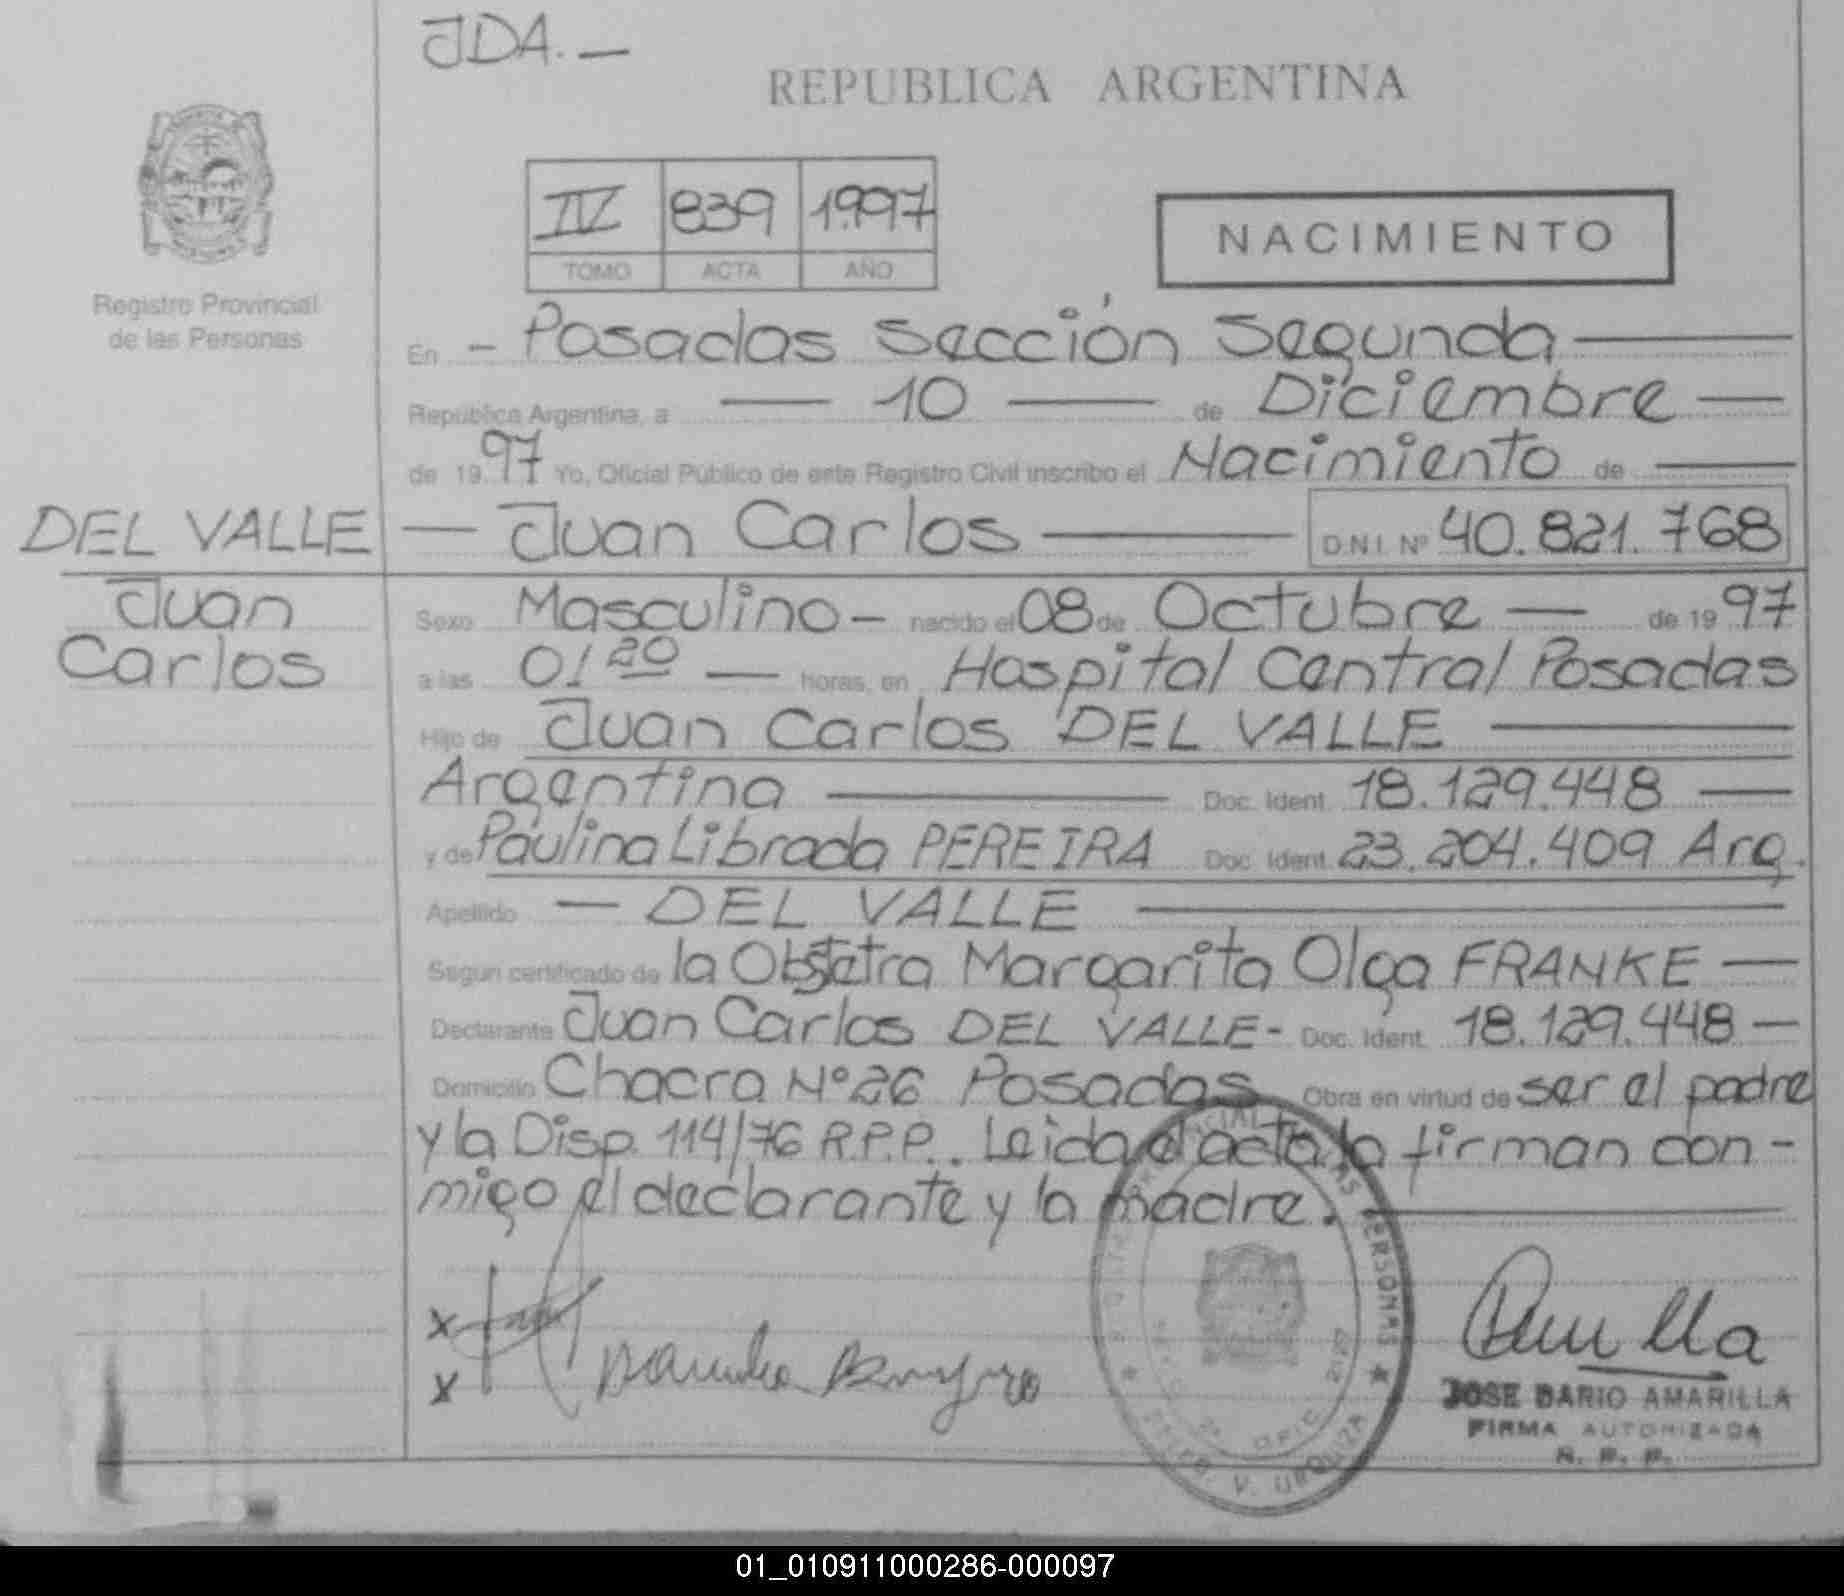 JDA. —
REPUBLICA ARGENTINA
IV 839 1997
TOMO ACTA AÑO
NACIMIENTO
Registro Provincial
de las Personas
En - Posadas Sección Segunda
República Argentina, a 10 de Diciembre
de 1997 Yo, Oficial Público de este Registro Civil inscribo el Nacimiento de
DEL VALLE
Juan
Carlos
Juan Carlos D.N.I. Nº 40.821.768
Sexo Masculino - nacido el 08 de Octubre de 1997
a las 01 20 horas, en Hospital Central Posadas
Hijo de Juan Carlos DEL VALLE
Argentina Doc. Ident. 18.129.448
y de Paulina Librada PEREIRA Doc. Ident. 23.204.409 Arg.
Apellido DEL VALLE
Según certificado de la Obstetra Margarita Olga FRANKE
Declarante Juan Carlos DEL VALLE - Doc. Ident. 18.129.448
Domicilio Chacra Nº 26 Posadas Obra en virtud de ser el padre
y la Disp. 114/76 R.P.P.. Leida el acta la firman con-
migo el declarante y la madre.
x
x
PERSONAS
V. URQUIZA
JOSE DARIO AMARILLA
FIRMA AUTORIZADA
R. P. P.
01_010911000286-000097